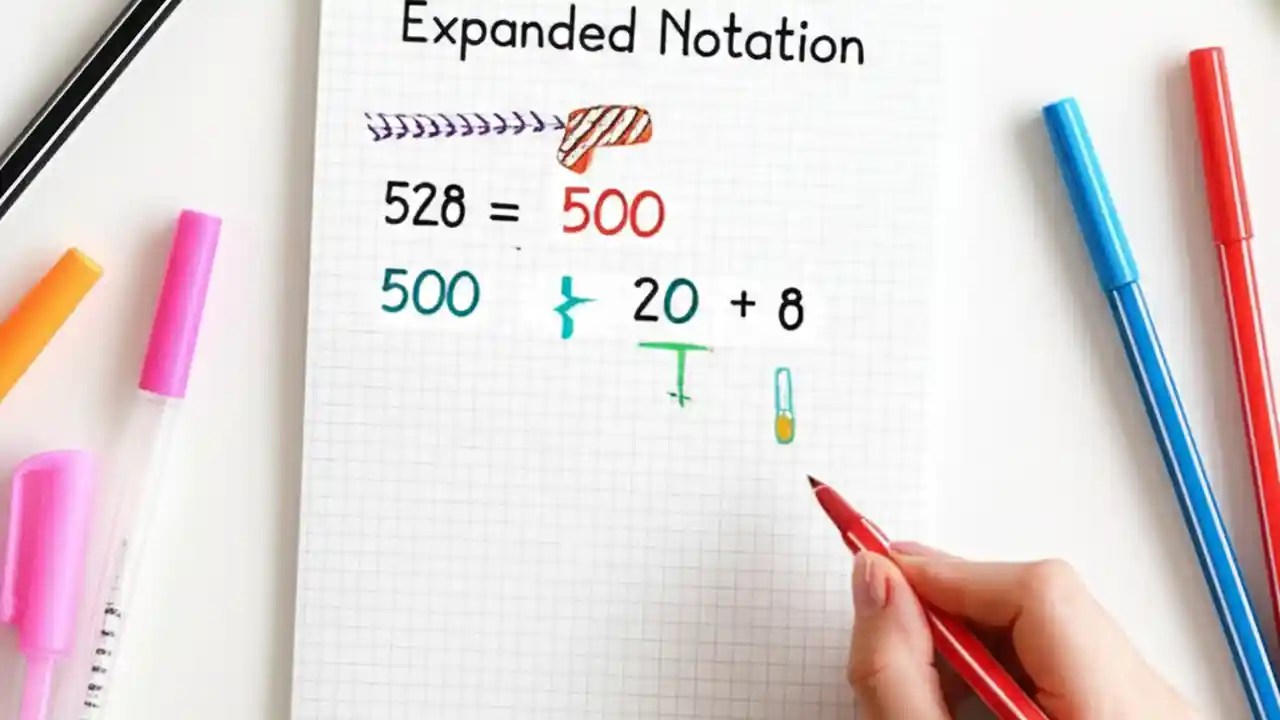 Expanded Notation
528 = 500
500 } 20 + 8